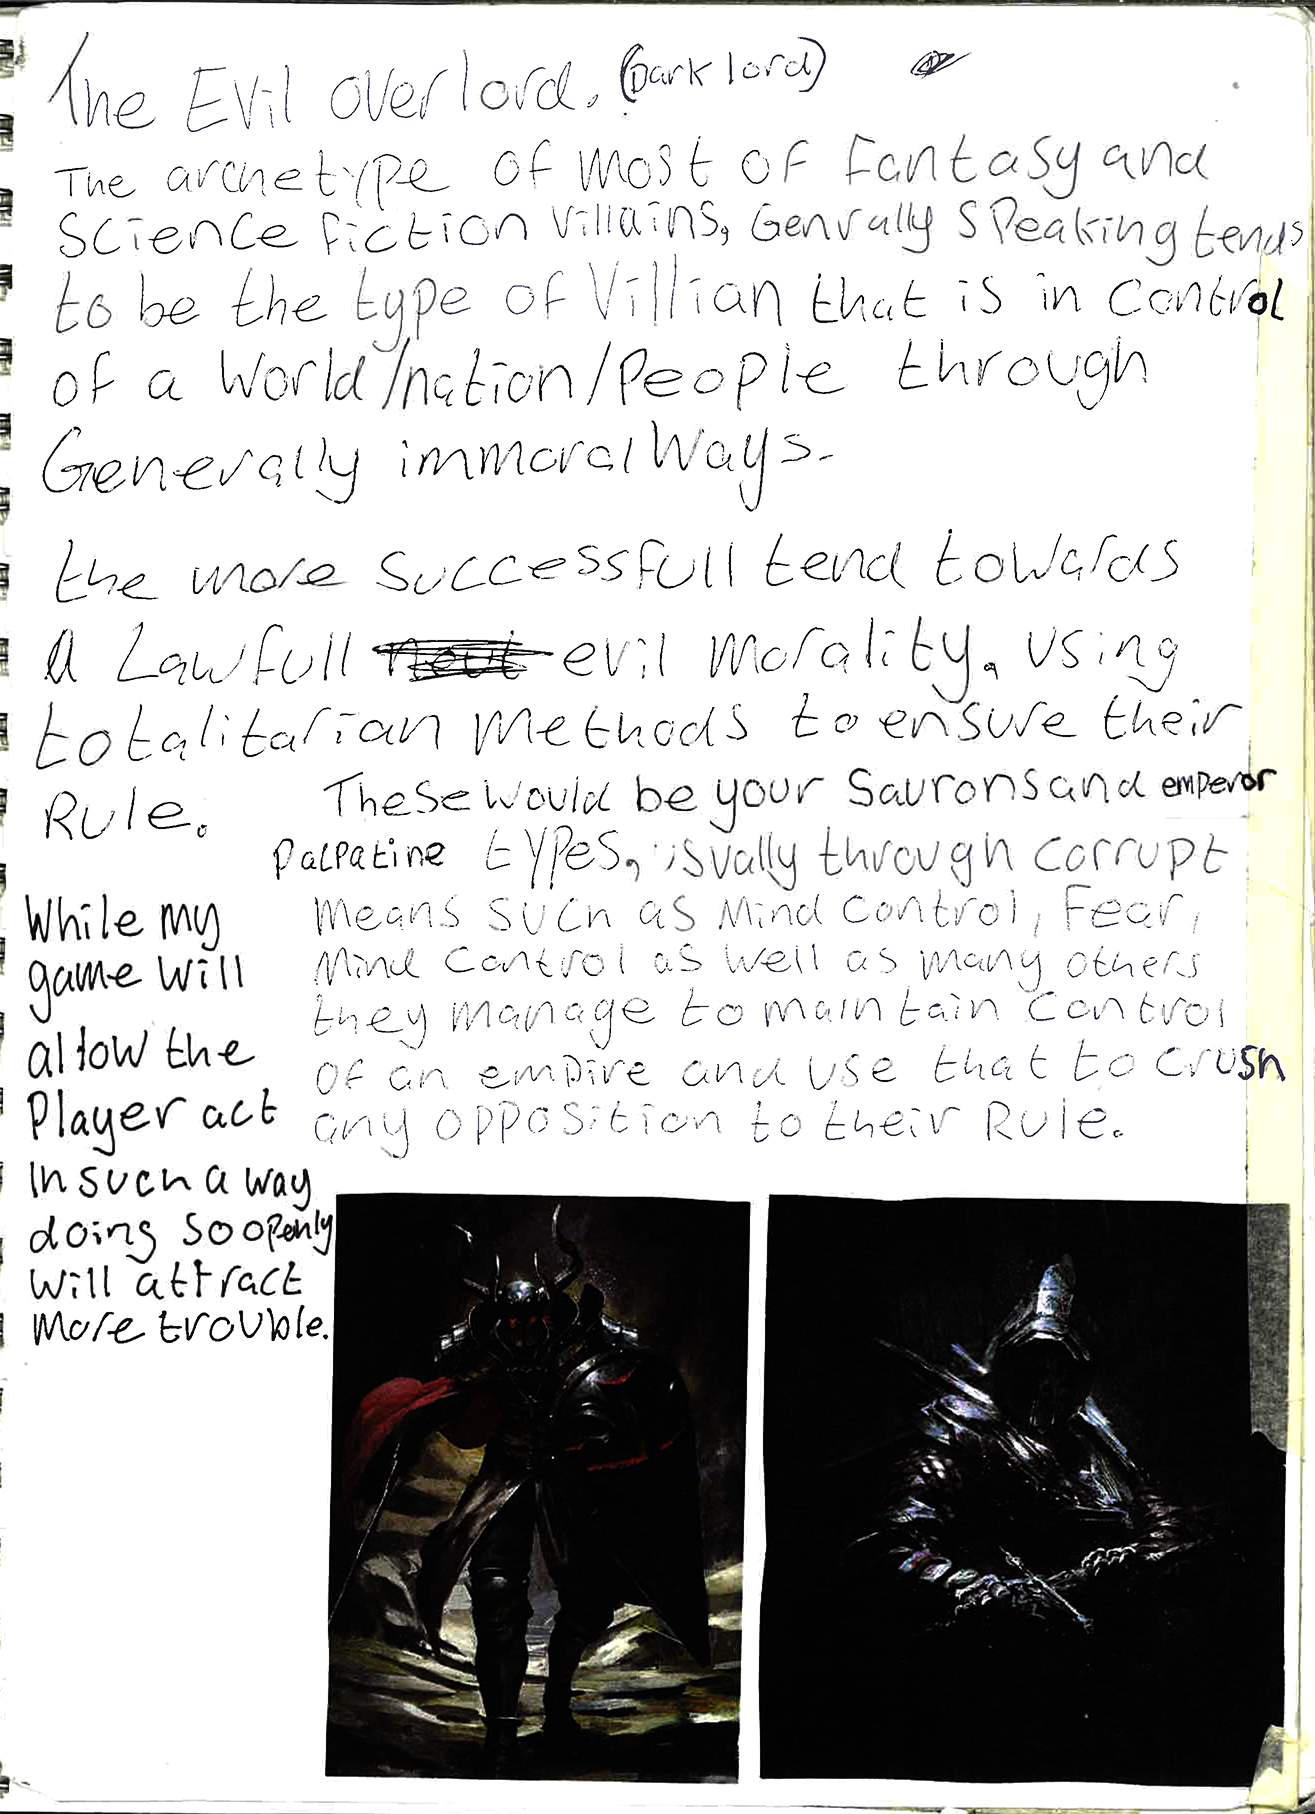 The Evil overlord. (Dark lord)
The archetype of most of fantasy and
science fiction villains, Genrally speaking tends
to be the type of Villian that is in control
of a World/nation/People through
Generally immoral Ways.
the more successfull tend towards
a Lawfull evil morality. Using
totalitarian methods to ensure their
Rule.
These would be your Saurons and emperor
Palpatine types, usually through corrupt
means such as Mind control, Fear,
Mind control as well as many others
they manage to maintain control
of an empire and use that to crush
any opposition to their Rule.
While my
game will
allow the
Player act
In such a way
doing so openly
will attract
more trouble.